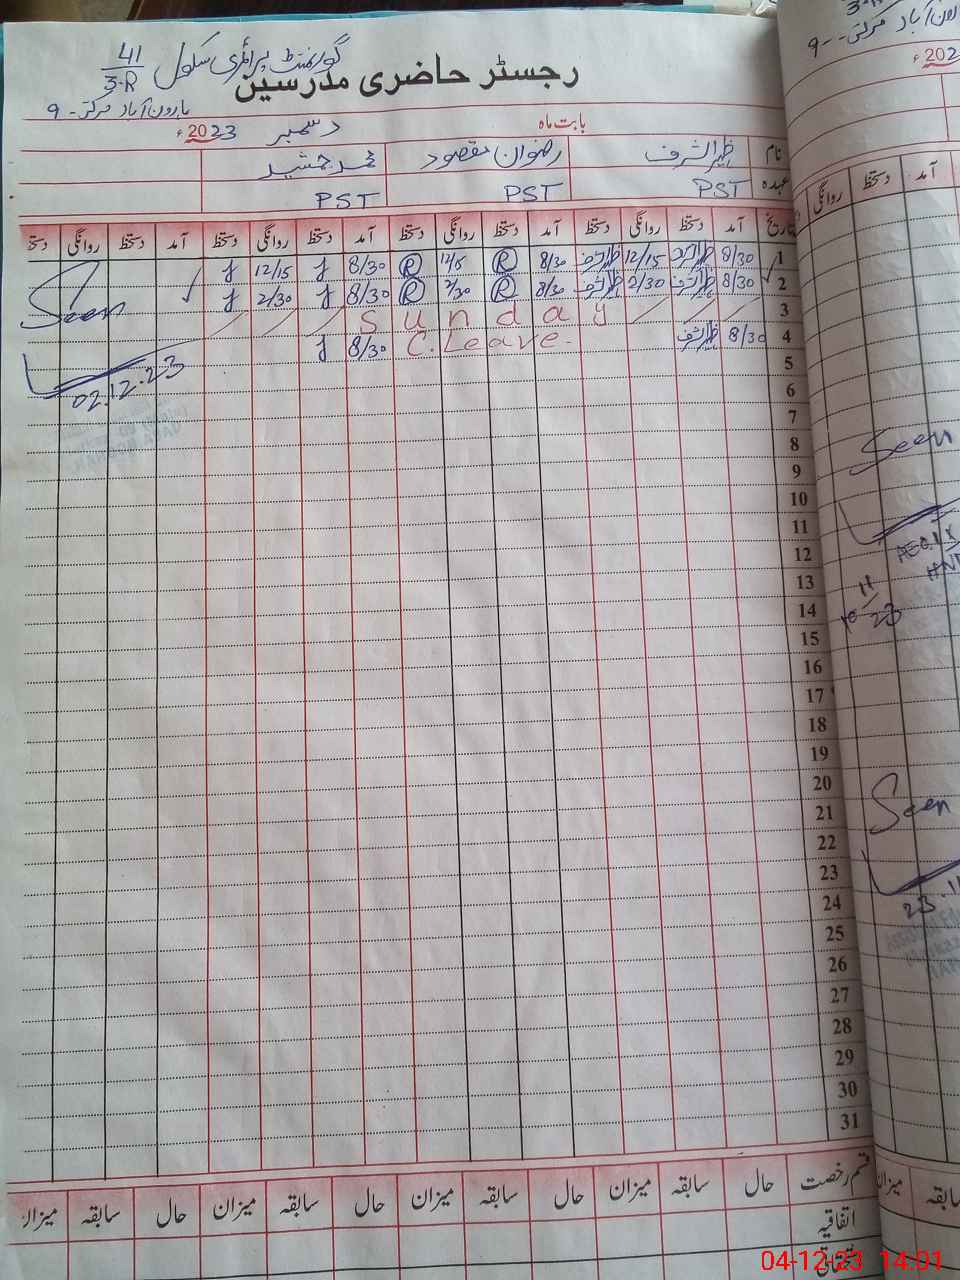 گورنمنٹ پرائمری سکول 41/3-R
رجسٹر حاضری مدرسین
ہارون آباد مرکز - 9
بابت ماہ دسمبر 2023ء
نام ظہیر اشرف رضوان مقصود محمد جمشید
عہدہ PST PST PST
تاریخ آمد دستخط روانگی دستخط آمد دستخط روانگی دستخط آمد دستخط روانگی دستخط آمد دستخط روانگی دستخ
1 8/30 12/15 8/30 R 12/15 R 8/30 J 12/15 J
2 8/30 2/30 8/30 R 2/30 R 8/30 J 2/30 J
Seen
3 Sunday
4 8/30 C. Leave. 8/30 J
02.12.23
5
6
7
8
9
10
11
12
13
14
15
16
17
18
19
20
21
22
23
24
25
26
27
28
29
30
31
قسم رخصت حال سابقہ میزان حال سابقہ میزان حال سابقہ میزان حال سابقہ میزان
اتفاقیہ
3-R
9
2023ء
آمد دستخط روانگی
Seen
11
23
Seen
23.11
میزان سابقہ
04-12-23 14:01